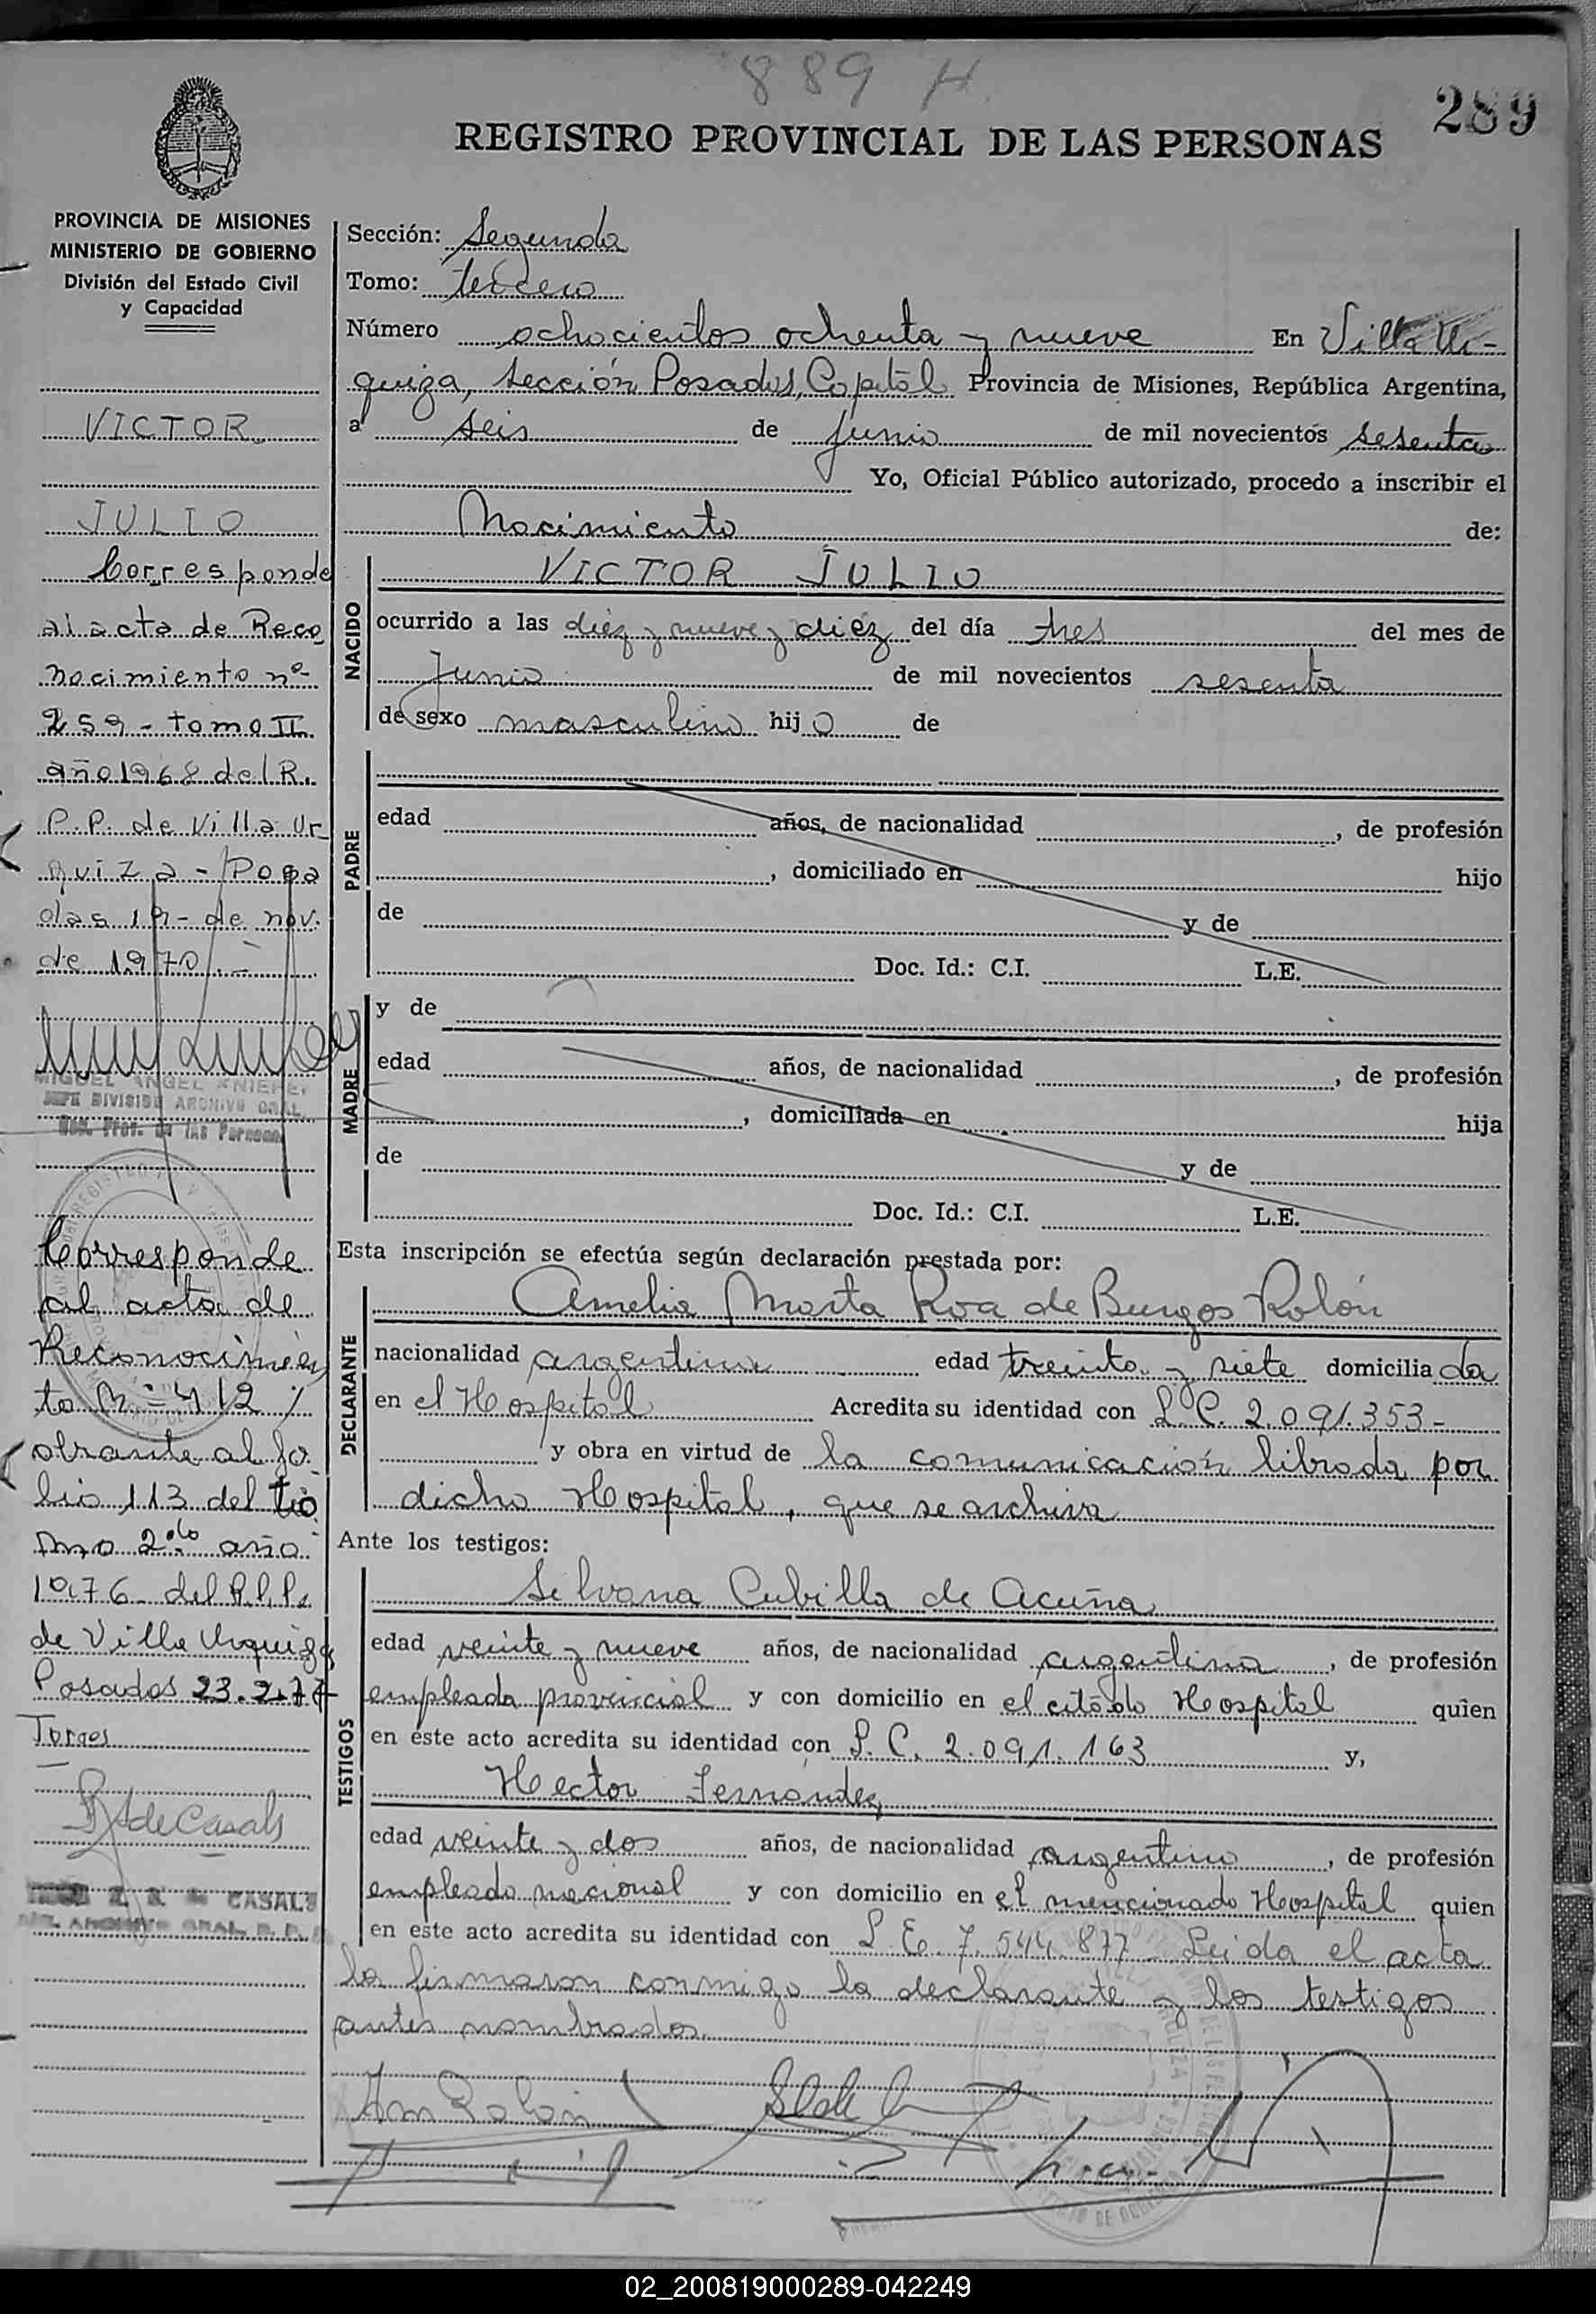 889 H.
289
REGISTRO PROVINCIAL DE LAS PERSONAS
PROVINCIA DE MISIONES
MINISTERIO DE GOBIERNO
División del Estado Civil
y Capacidad
VICTOR
JULIO
Corresponde
al acta de Reco
nocimiento nº
259 - tomo II
año 1968 del R.
P.P. de Villa Ur
quiza - Posa
das 19 - de nov.
de 1970.-
MIGUEL ANGEL KNIEPE
JEFE DIVISION ARCHIVO GRAL.
Reg. Prov. de las Personas
Corresponde
al acta de
Reconocimien
to Nº 412 /
obrante al fo
lio 113 del to
mo 2do año
1976 del R.P.P.
de Villa Urquiza
Posadas 23.2.77
Torres
de Casals
CASALS
ARCHIVO GRAL. R. P.
Sección: Segunda
Tomo: tercero
Número ochocientos ochenta y nueve En Villa Ur-
quiza, Sección Posadas, Capital Provincia de Misiones, República Argentina,
a seis de junio de mil novecientos sesenta
Yo, Oficial Público autorizado, procedo a inscribir el
Nacimiento de:
NACIDO
VICTOR JULIO
ocurrido a las diez y nueve y diez del día tres del mes de
Junio de mil novecientos sesenta
de sexo masculino hijo de
PADRE
edad años, de nacionalidad , de profesión
, domiciliado en hijo
de y de
Doc. Id.: C.I. L.E.
MADRE
y de
edad años, de nacionalidad , de profesión
, domiciliada en hija
de y de
Doc. Id.: C.I. L.E.
Esta inscripción se efectúa según declaración prestada por:
DECLARANTE
Amelia Marta Roa de Burgos Rolón
nacionalidad argentina edad treinta y siete domiciliada
en el Hospital Acredita su identidad con L.C. 2.091.353-
y obra en virtud de la comunicación librada por
dicho Hospital, que se archiva
Ante los testigos:
TESTIGOS
Silvana Cubilla de Acuña
edad veinte y nueve años, de nacionalidad argentina, de profesión
empleada provincial y con domicilio en el citado Hospital quien
en este acto acredita su identidad con L.C. 2.091.163 y,
Hector Fernández
edad veinte y dos años, de nacionalidad argentino, de profesión
empleado nacional y con domicilio en el mencionado Hospital quien
en este acto acredita su identidad con L.E. 7.544.877 - Leida el acta
la firmaron conmigo la declarante y los testigos
antes nombrados.
Am Rolón
02_200819000289-042249